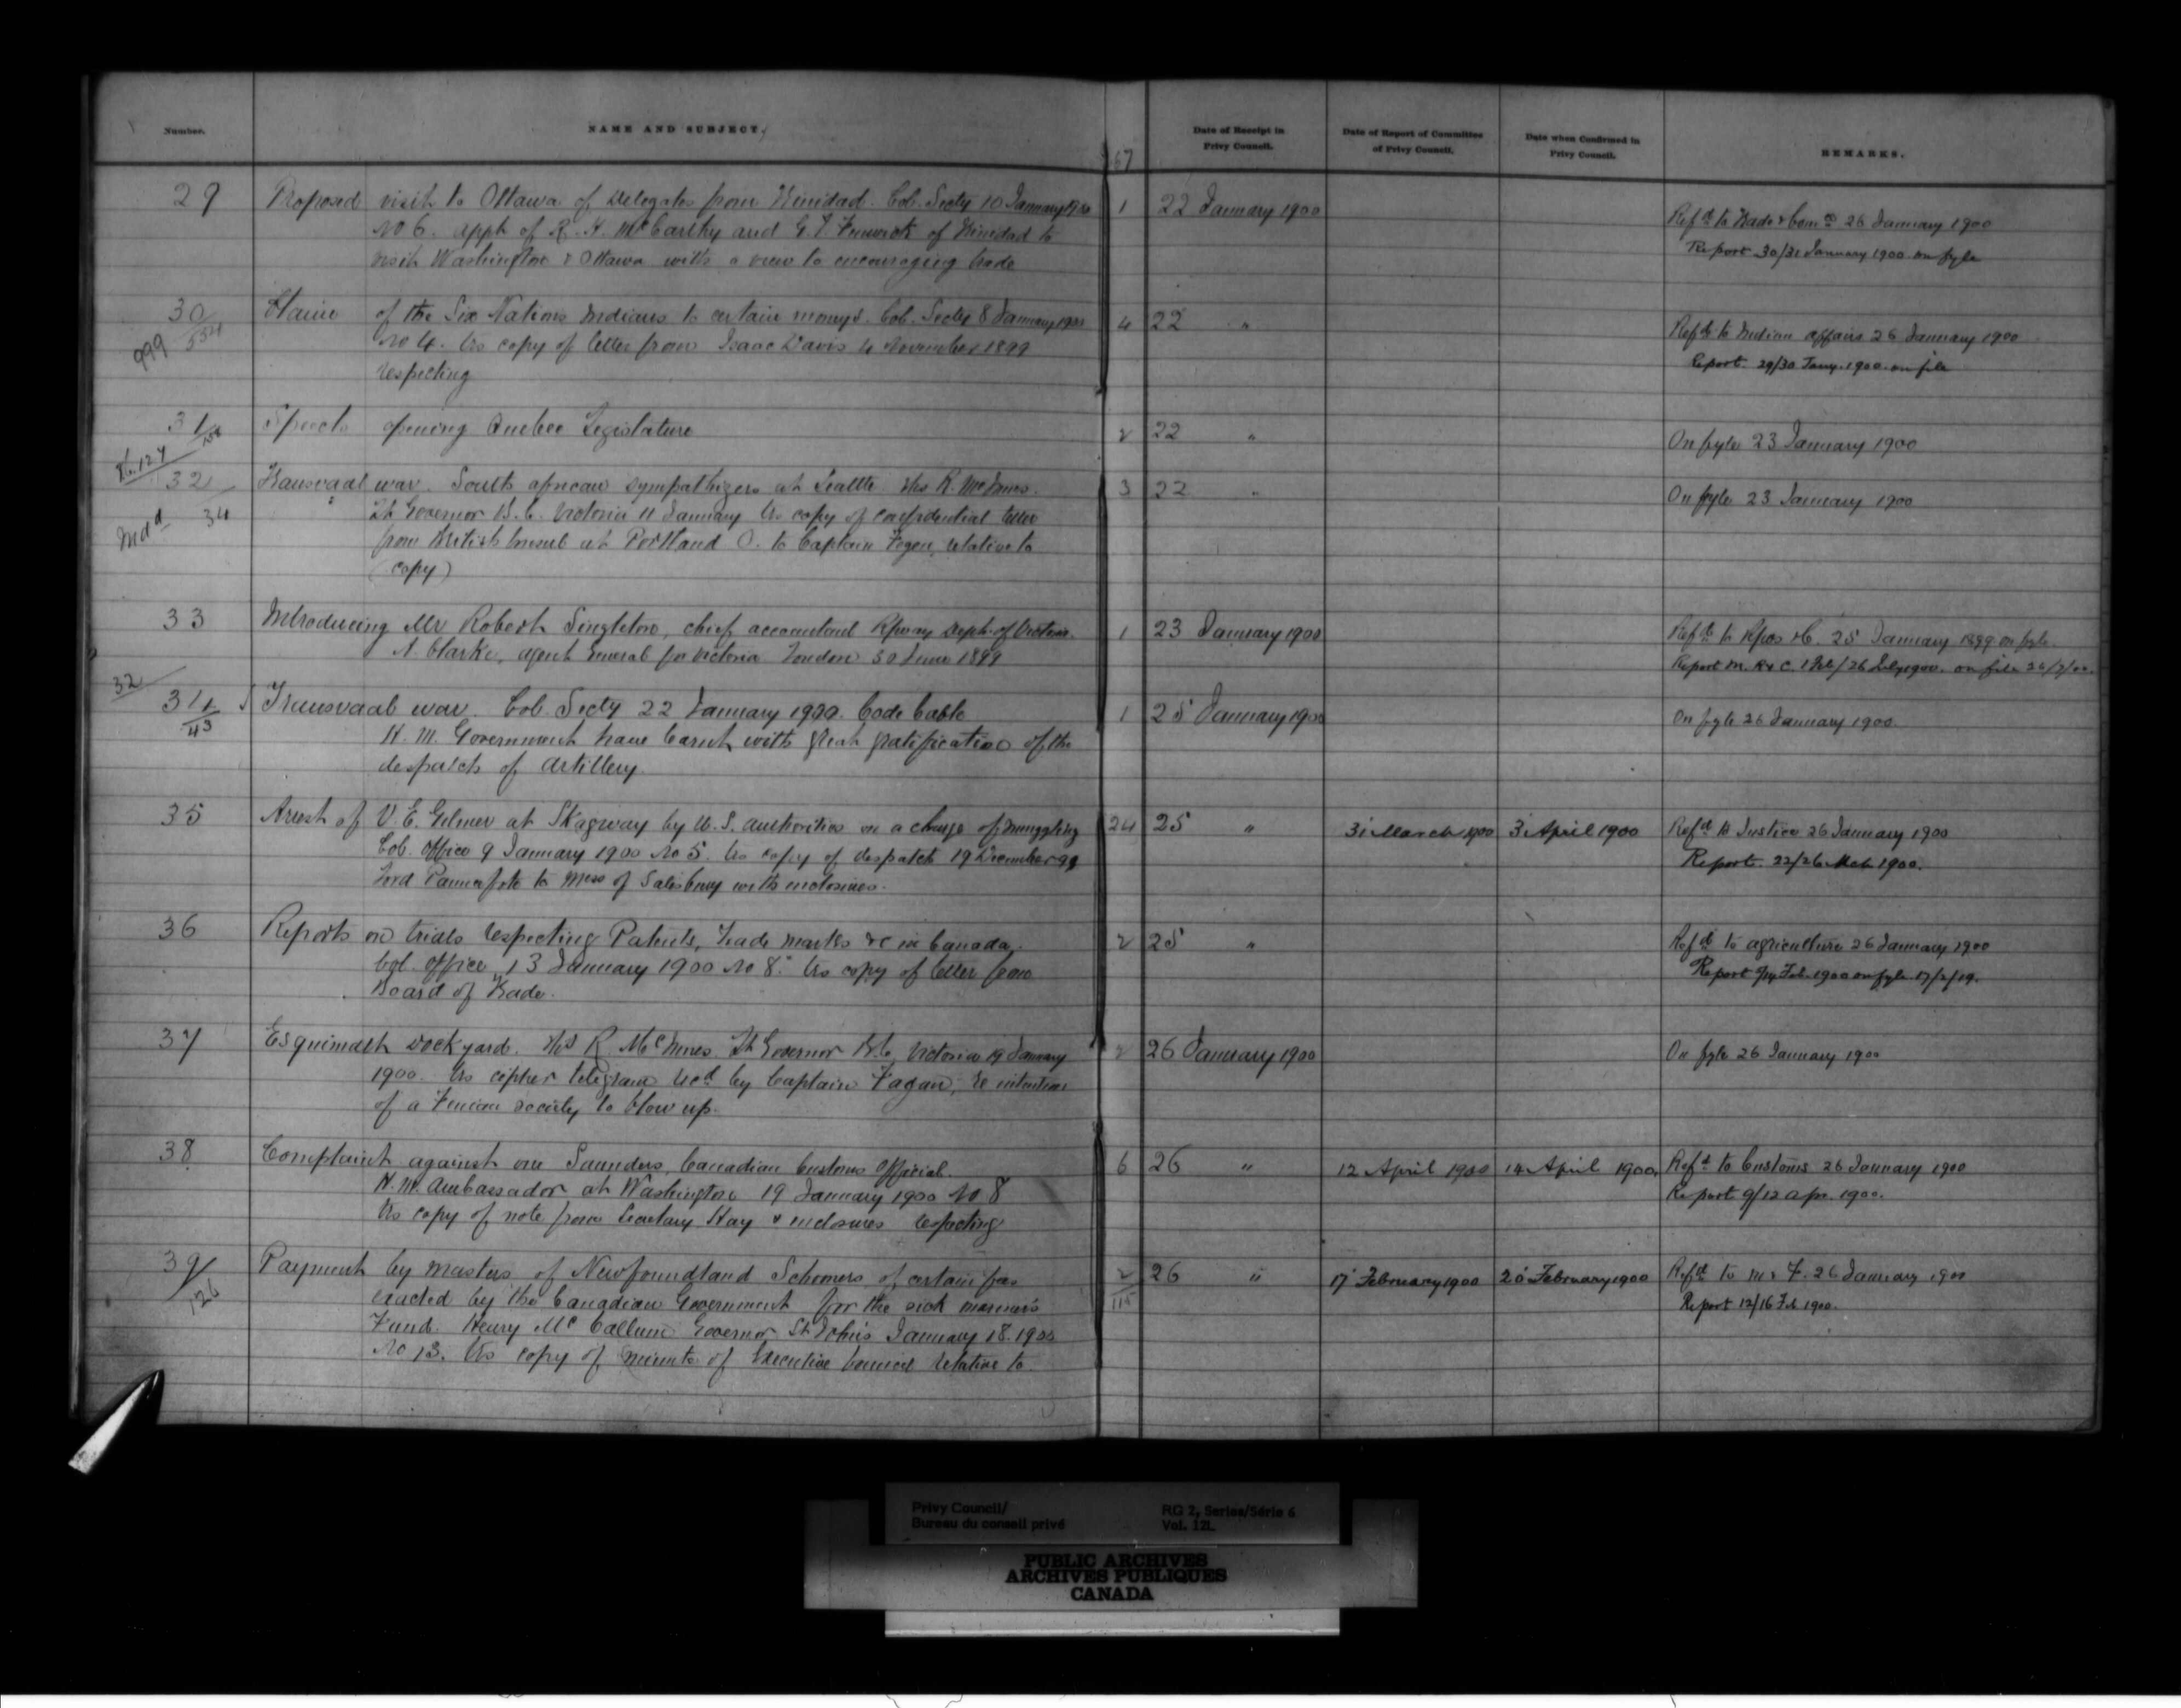 Number.
NAME AND SUBJECT.
67
Date of Receipt in Privy Council.
Date of Report of Committee of Privy Council.
Date when Confirmed in Privy Council.
REMARKS.
29 Proposed visit to Ottawa of Delegates from Trinidad. Col. Secty 10 January 1900 1 22 January 1900 Refd to Trade & Come 26 January 1900
No 6. appt of R. H. McCarthy and G. T. Fenwick of Trinidad to Report 30/31 January 1900 on fyle
visit Washington & Ottawa with a view to encouraging trade
30/534 Claim of the Six Nations Indians to certain moneys. Col. Secty 8 January 1900 4 22 " Refd to Indian affairs 26 January 1900
999 No 4. Trs copy of letter from Isaac Davis 4 November 1899 Report 29/30 Jany. 1900 on file
respecting
31 Speech opening Quebec Legislature 2 22 " On fyle 23 January 1900
32 Transvaal war. South african sympathizers at Seattle. Thos R. McInnes. 3 22 " On fyle 23 January 1900
34 Lt Governor B.C. Victoria 11 January Trs copy of confidential letter
from British Consul at Portland O. to Captain Fegen, relative to
(copy)
33 Introducing Mr Robert Singleton, chief accountant Rlway Dept. of Victoria. 1 23 January 1900 Refd to Rlws & C. 25 January 1899 on fyle
A. Clarke, agent General for Victoria London 30 June 1899 Report M. R & C. 1 Feb/26 July 1900. on file
32
34/43 Transvaal war. Col. Secty 22 January 1900. Code Cable 1 25 January 1900 On fyle 26 January 1900.
H. M. Government have learnt with great gratification of the
despatch of artillery.
35 Arrest of V. E. Gilmer at Skagway by U.S. authorities on a charge of smuggling 24 25 " 31 March 1900 3 April 1900 Refd to Justice 26 January 1900
Col. Office 9 January 1900 No 5. Trs copy of despatch 19 December 99 Report. 22/26 Mch 1900.
Lord Pauncefote to Mss of Salisbury with inclosures.
36 Reports on trials respecting Patents, Trade marks &c in Canada. 2 25 " Refd to agriculture 26 January 1900
Col. Office 13 January 1900 No 8. Trs copy of letter from Report Feb. 1900 on fyle
Board of Trade.
37 Esquimalt Dock yard. Thos R. McInnes. Lt Governor B.C. Victoria 19 January 2 26 January 1900 On fyle 26 January 1900
1900. Trs cipher telegram recd by Captain Fagan, re intention
of a Fenian society to blow up.
38 Complaint against one Saunders, Canadian Customs Official. 6 26 " 12 April 1900 14 April 1900. Refd to Customs 26 January 1900
H. M. Ambassador at Washington 19 January 1900 No 8 Report 9/12 Apr. 1900.
Trs copy of note from Secretary Hay & inclosures respecting
39/126 Payment by masters of Newfoundland Schooners of certain fees 2/115 26 " 17 February 1900 20 February 1900 Refd to M & F. 26 January 1900
exacted by the Canadian Government for the sick mariners Report 12/16 Feb 1900.
Fund. Henry McCallum Governor St John's January 18. 1900
No 13. Trs copy of minute of Executive Council relative to
Privy Council/
Bureau du conseil privé
RG 2, Series/Série 6
Vol. 121.
PUBLIC ARCHIVES
ARCHIVES PUBLIQUES
CANADA